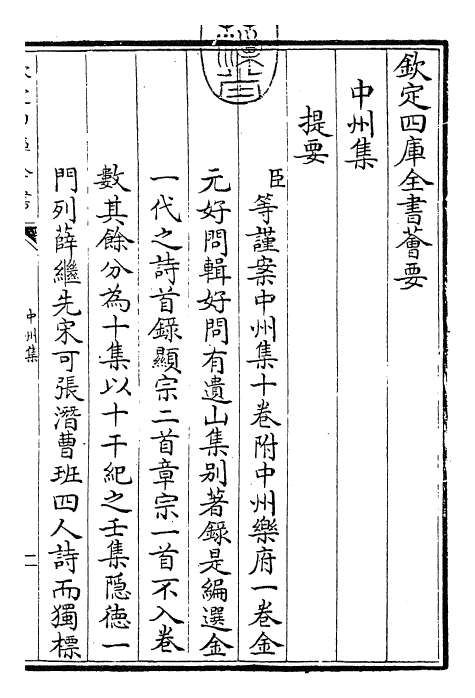 欽定四庫全書薈要
中州集
提要
臣等謹案中州集十卷附中州樂府一卷金
元好問輯好問有遺山集别著錄是編選金
一代之詩首錄顯宗二首章宗一首不入卷
數其餘分為十集以十干紀之壬集隐德一
門列薛繼先宋可張潛曹珏四人詩而獨標
中州集
二